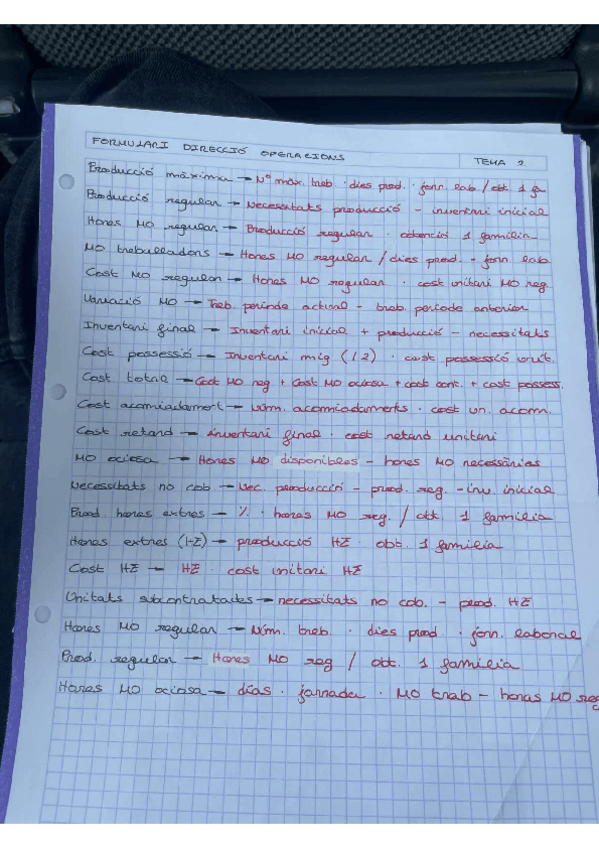 FORMULARI DIRECCIÓ OPERACIONS TEMA 2
Producció màxima → Nº màx. treb · dies prod. · jorn. lab / obt. 1 fa
Producció regular → Necessitats producció - inventari inicial
Hores MO regular → Producció regular · obtenció 1 família
MO treballadors → Hores MO regular / dies prod. - jorn. lab.
Cost MO regular → Hores MO regular · cost unitari MO reg.
Variació MO → Treb. període actual - treb. període anterior
Inventari final → Inventari inicial + producció - necessitats
Cost possessió → Inventari mig (/2) · cost possessió unit.
Cost total → Cost MO reg + Cost MO ociosa + cost cont. + cost possess.
Cost acomiadament → Núm. acomiadaments · cost un. acom.
Cost retard → inventari final · cost retard unitari
MO ociosa → Hores MO disponibles - hores MO necessàries
Necessitats no cob → Nec. producció - prod. reg. - inv. inicial
Prod hores extres → % · hores MO reg. / obt. 1 família
Hores extres (HE) → producció HE · obt. 1 família
Cost HE → HE · cost unitari HE
Unitats subcontratades → necessitats no cob. - prod. HE
Hores MO regular → Núm. treb. · dies prod · jorn. laboral
Prod. regular → Hores MO reg / obt. 1 família
Hores MO ociosa → días · jornada · MO treb - horas MO reg